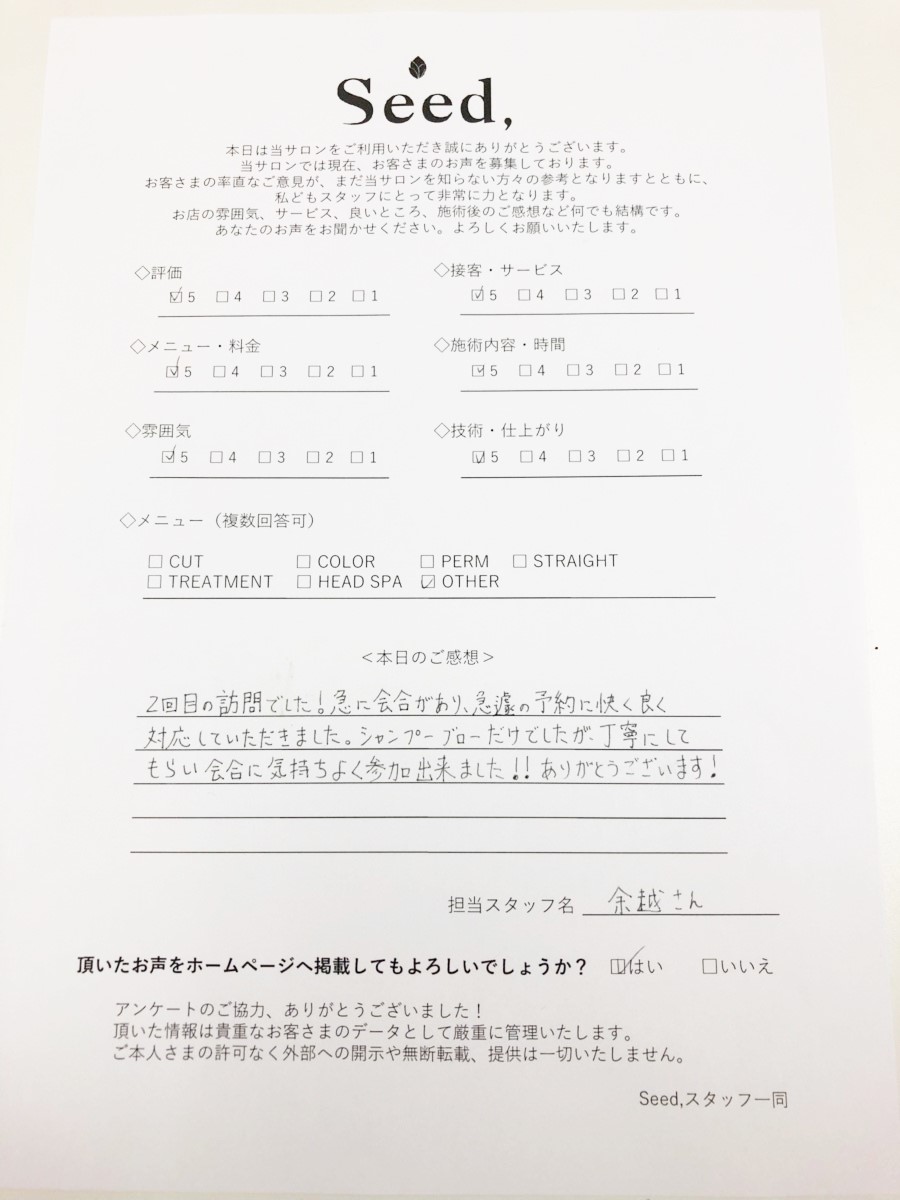 Seed,
本日は当サロンをご利用いただき誠にありがとうございます。
当サロンでは現在、お客さまのお声を募集しております。
お客さまの率直なご意見が、まだ当サロンを知らない方々の参考となりますとともに、
私どもスタッフにとって非常に力となります。
お店の雰囲気、サービス、良いところ、施術後のご感想など何でも結構です。
あなたのお声をお聞かせください。よろしくお願いいたします。
◇評価
☑5 □4 □3 □2 □1
◇接客・サービス
☑5 □4 □3 □2 □1
◇メニュー・料金
☑5 □4 □3 □2 □1
◇施術内容・時間
☑5 □4 □3 □2 □1
◇雰囲気
☑5 □4 □3 □2 □1
◇技術・仕上がり
☑5 □4 □3 □2 □1
◇メニュー（複数回答可）
□ CUT □ COLOR □ PERM □ STRAIGHT
□ TREATMENT □ HEAD SPA ☑ OTHER
＜本日のご感想＞
2回目の訪問でした！急に会合があり、急遽の予約に快く良く
対応していただきました。シャンプーブローだけでしたが、丁寧にして
もらい会合に気持ちよく参加出来ました!! ありがとうございます！
担当スタッフ名 余越さん
頂いたお声をホームページへ掲載してもよろしいでしょうか？ ☑はい □いいえ
アンケートのご協力、ありがとうございました！
頂いた情報は貴重なお客さまのデータとして厳重に管理いたします。
ご本人さまの許可なく外部への開示や無断転載、提供は一切いたしません。
Seed,スタッフ一同